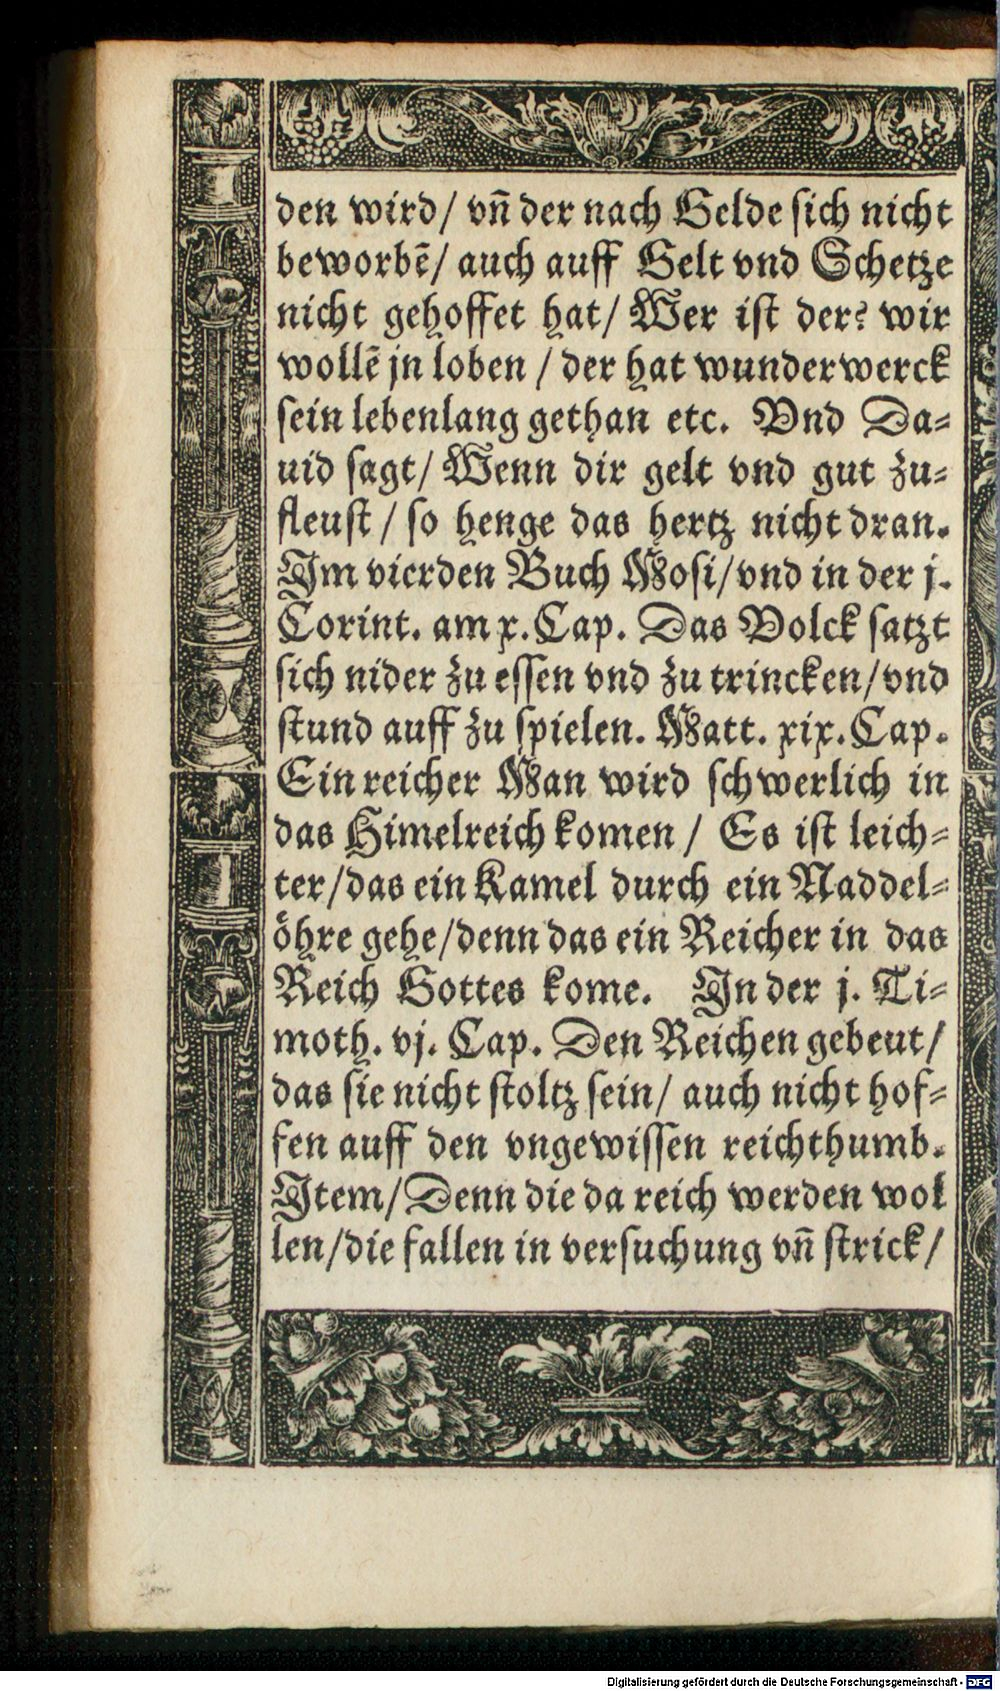 den wird/ vñ der nach Gelde sich nicht
beworbē/ auch auff Gelt vnd Schetze
nicht gehoffet hat/ Wer ist der? wir
wollē jn loben / der hat wunderwerck
sein lebenlang gethan etc. Vnd Da-
uid sagt/ Wenn dir gelt vnd gut zu-
fleust / so henge das hertz nicht dran.
Im vierden Buch Mosi/ vnd in der j.
Corint. am x. Cap. Das Volck satzt
sich nider zu essen vnd zu trincken/ vnd
stund auff zu spielen. Matt. xix. Cap.
Ein reicher Man wird schwerlich in
das Himelreich komen / Es ist leich-
ter/ das ein Kamel durch ein Naddel-
öhre gehe/ denn das ein Reicher in das
Reich Gottes kome. In der j. Ti-
moth. vj. Cap. Den Reichen gebeut/
das sie nicht stoltz sein/ auch nicht hof-
fen auff den vngewissen reichthumb.
Item/ Denn die da reich werden wol
len/ die fallen in versuchung vñ strick/
Digitalisierung gefördert durch die Deutsche Forschungsgemeinschaft - DFG